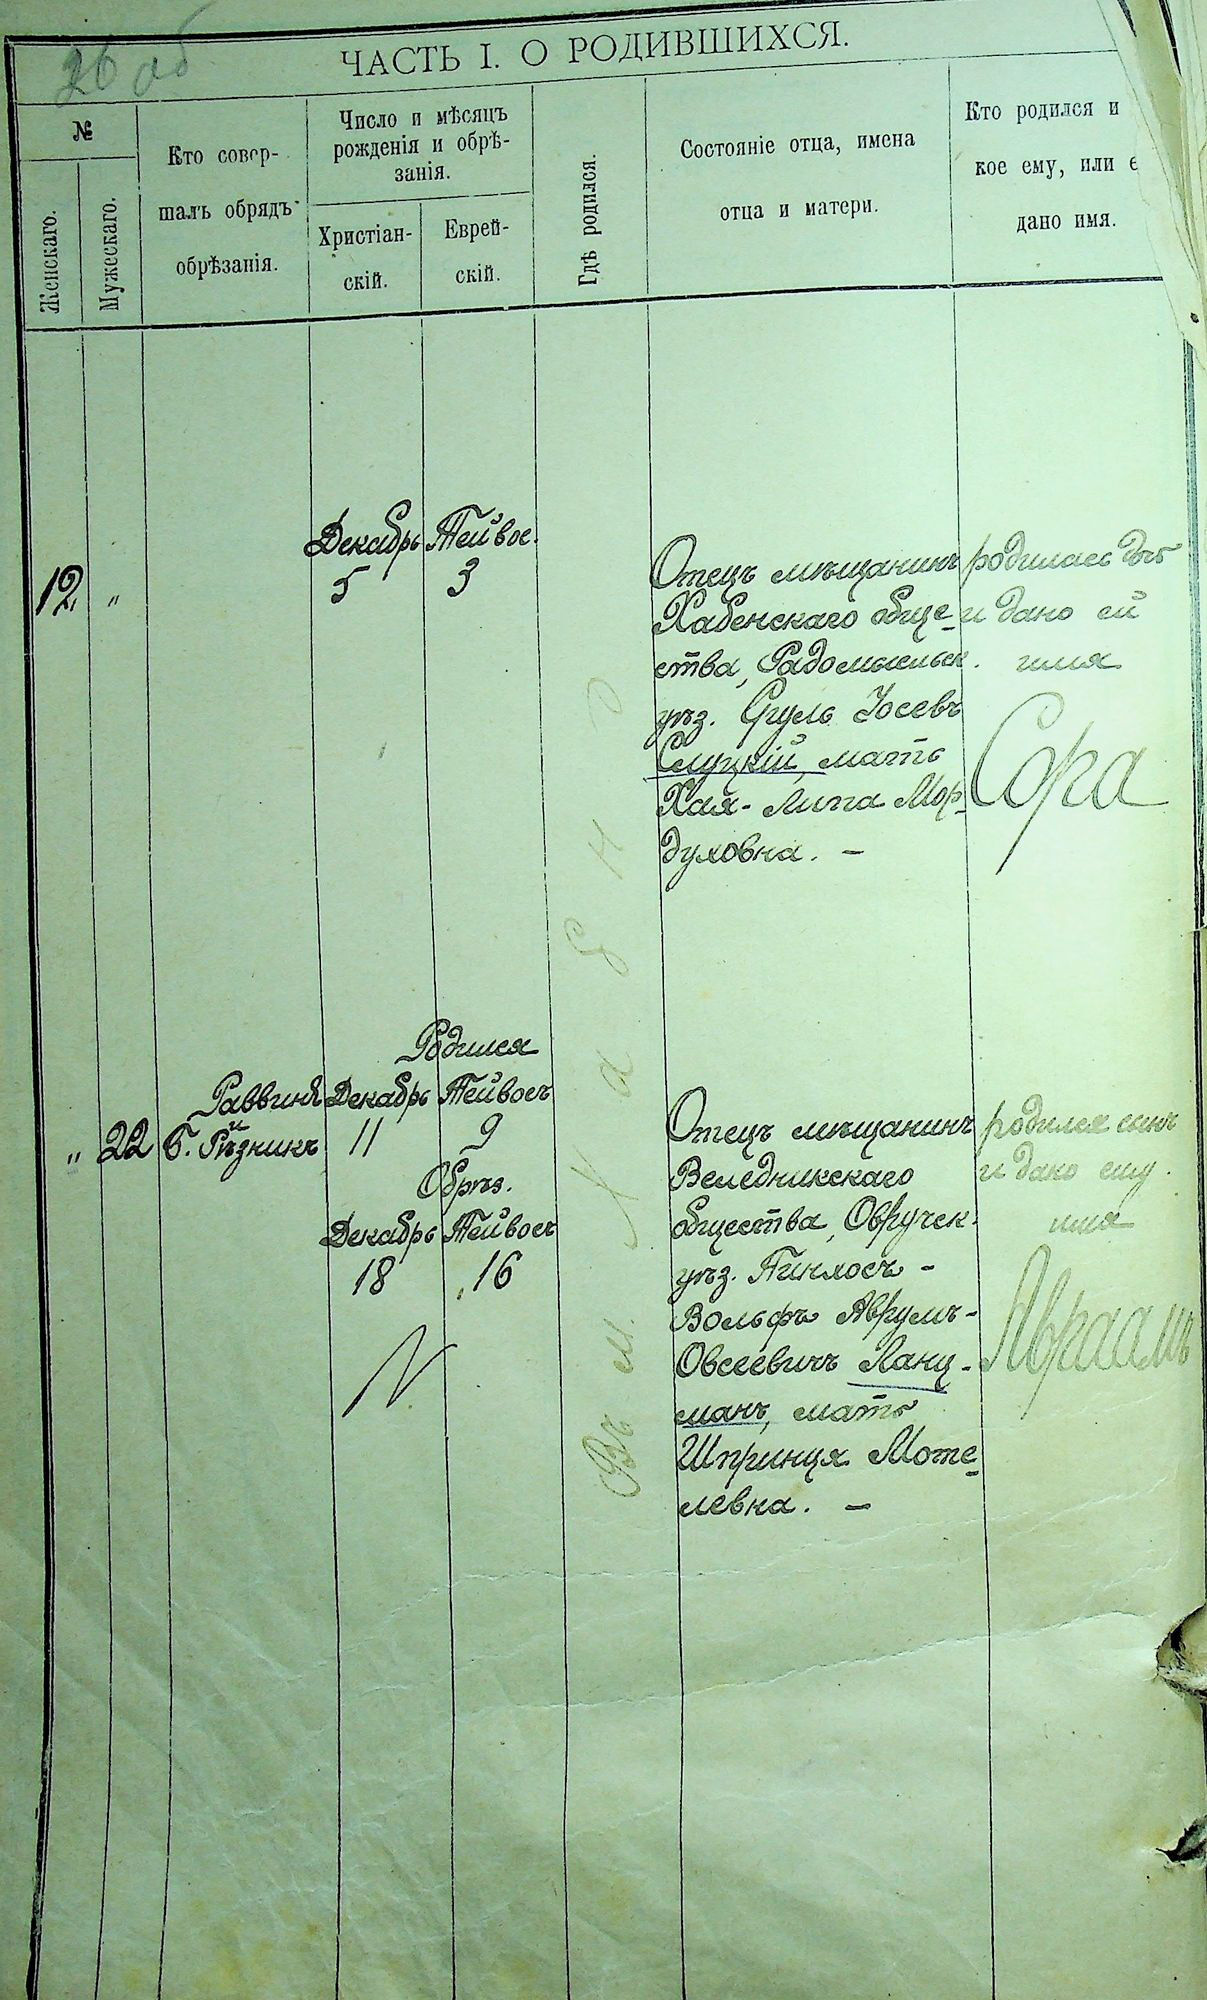 26 об
ЧАСТЬ I. О РОДИВШИХСЯ.
№
Женскаго.
Мужескаго.
Кто совер-
шалъ обрядъ
обрѣзанія.
Число и мѣсяцъ
рожденія и обрѣ-
занія.
Христіан-
скій.
Еврей-
скій.
Гдѣ родился.
Состояніе отца, имена
отца и матери.
Кто родился и
кое ему, или е
дано имя.
Декабрь Тейвос.
12 „ 5 3
Отецъ мѣщанинъ
Хабенскаго обще-
ства, Радомысльск.
уѣз. Сруль Іосевъ
Слуцкій, мать
Хая-Липа Мор-
духовна. —
родилась дочь
и дано ей
имя
Сора
Въ м. Хабно
Родился
Раввинъ Декабрь Тейвосъ
и
„ 22 Б. Рѣзникъ 11 9
Обрѣз.
Декабрь Тейвосъ
18 16
Отецъ мѣщанинъ
Веледникскаго
общества, Овручск.
уѣз. Пинхосъ-
Вольфъ Аврумъ-
Овсеевичъ Ланц-
манъ, мать
Шпринця Моте-
левна. —
родился сынъ
и дано ему
имя
Авраамъ